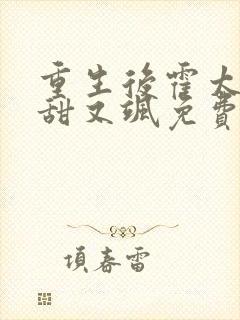 重生後霍太
甜又颯免費
項春雷